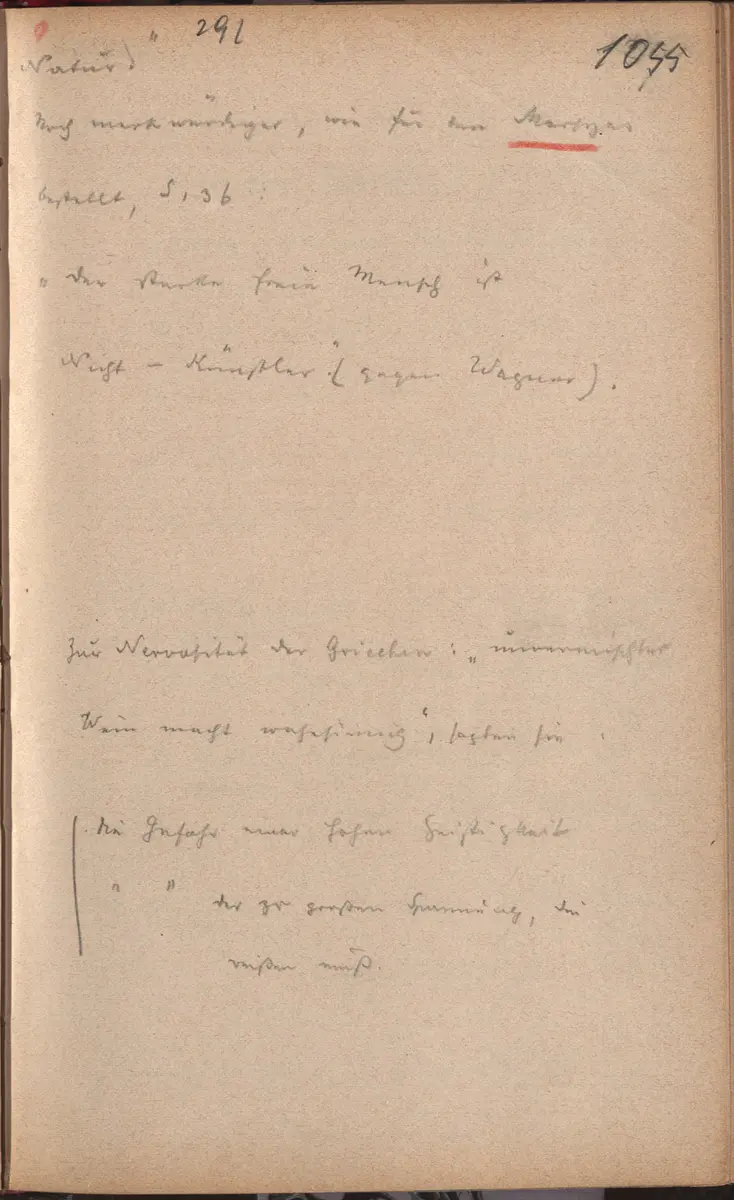 " 291
1055
Natur)
Noch merkwürdiger, wie für den Marsyas
bestellt, S, 36 :
„der starke freie Mensch ist
Nicht - Künstler." (gegen Wagner).
Zur Nervosität der Griechen: „unvermischter
Wein macht wahnsinnig", sagten sie.
die Gefahr einer hohen Geistigkeit
" " der zu großen Spannung, die
reißen muß.